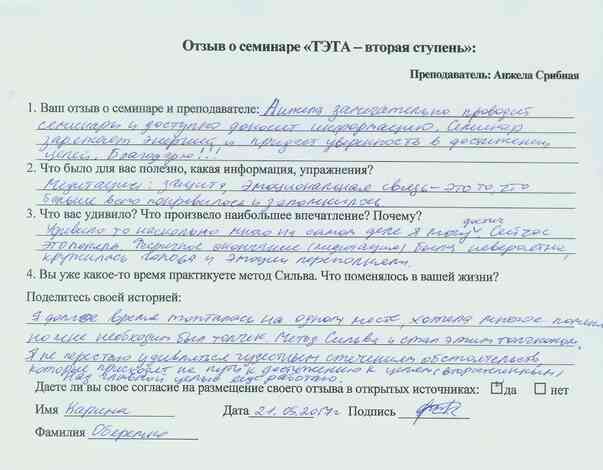 Отзыв о семинаре «ТЭТА – вторая ступень»:
Преподаватель: Анжела Срибная
1. Ваш отзыв о семинаре и преподавателе: Анжела замечательно проводит
семинары и доступно доносит информацию. Семинар
заряжает энергией и придает уверенность в достижении
целей. Благодарю!!!
2. Что было для вас полезно, какая информация, упражнения?
Медитации: защита, эмоциональная связь – это то, что
больше всего понравилось и запомнилось
3. Что вас удивило? Что произвело наибольшее впечатление? Почему?
достич
Удивило то насколько много на самом деле я могу Сейчас
это поняла. окончание (медитация) была невероятно,
кружилась голова и эмоции переполняли.
4. Вы уже какое-то время практикуете метод Сильва. Что поменялось в вашей жизни?
Поделитесь своей историей:
Я долгое время топталась на одном месте, хотела многое
но мне необходим был толчок. Метод Сильва и стал этим толчком.
Я не перестаю удивляться чудесным стечениям обстоятельств,
которые на пути к достижению к целям (второстепенным)
Над главной целью еще работаю.
Даете ли вы свое согласие на размещение своего отзыва в открытых источниках: да нет
Имя Карина Дата 21.05.2017г Подпись
Фамилия